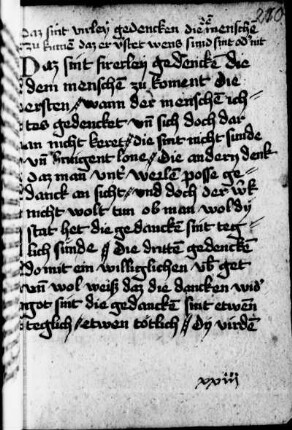 280
Daz sint virley gedencken die dē mensche
zu kumē daz er
Daz sint firerley gedencken die
dem menschen zu koment die
ersten / wann der menschen ich=
tes gedencket vn̄ sich doch dar
an nicht keret / die sint nicht sunde
vn̄ lone / Die andern denk
daz man vnt weilen posse ge=
danck an sicht / vnd doch der wk
nicht wolt tun ob man wol dy
stat het die gedancken sint teg=
lich sunde // Die driten gedencken
do mit ein williglichen vb get
vn̄ wol weiß daz die dancken wid
got sint die gedancken sint etwen
teglich / etwen tötlich // Dy virden
xxiiij